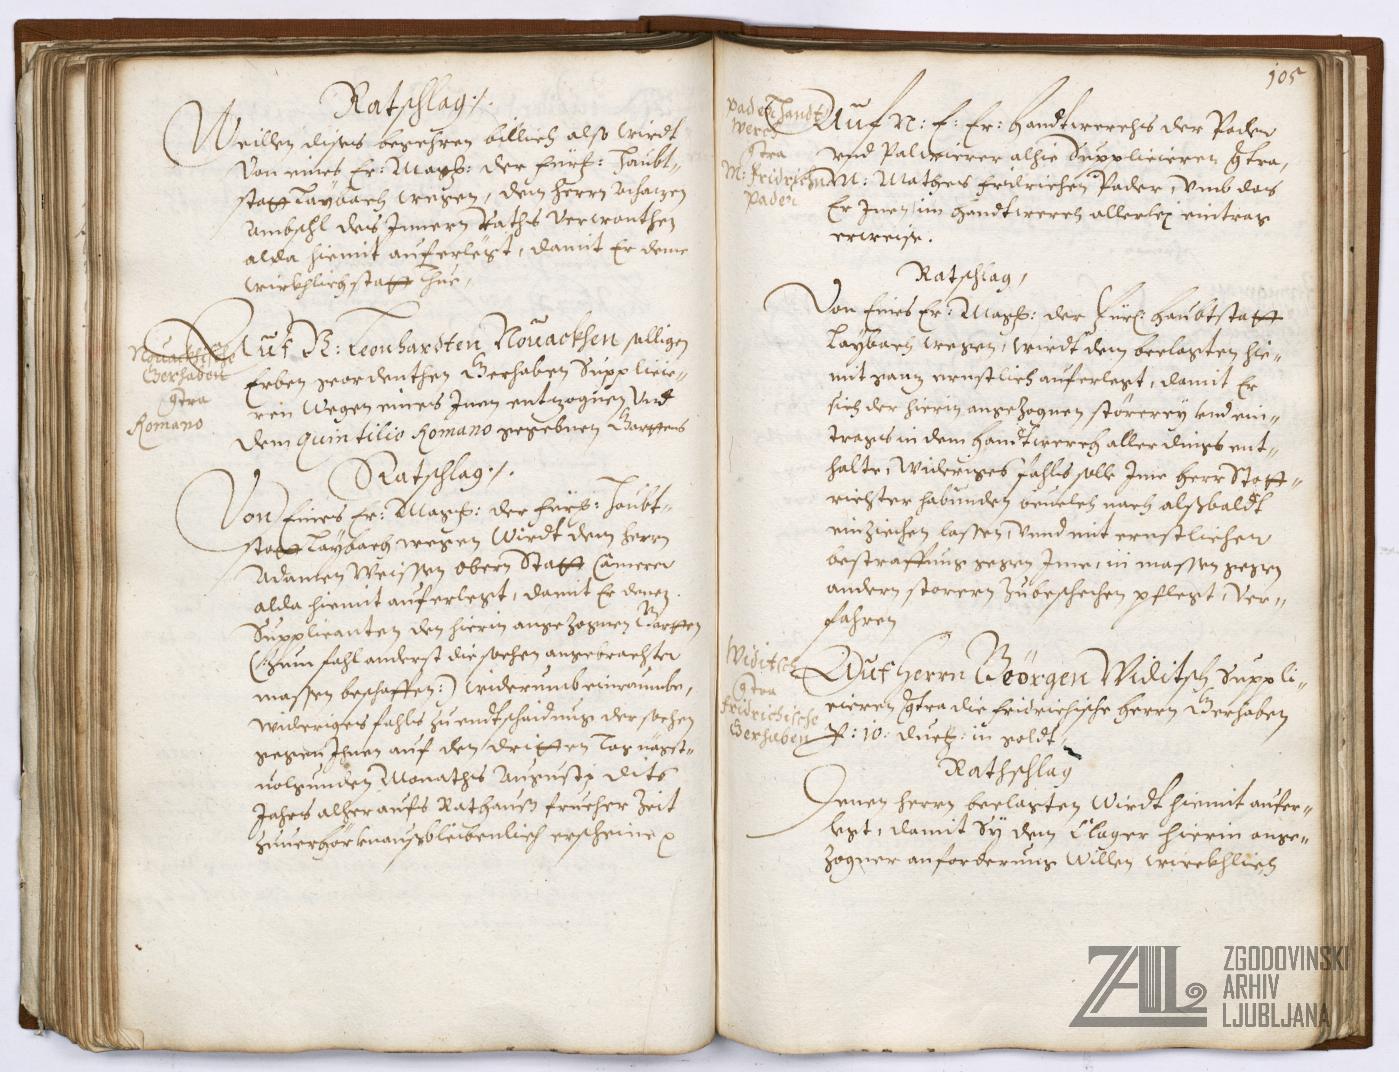 Ratschlag :/:
Weillen dises begehren billich alß wirdt
Von eines Er: Mag: der fürst: Haubt-
statt Laybach wegen, dem Herrn Achazen
Ambschl des Innern Raths Verwonthen
alda hiemit auferlegt, damit Er deme
würkhlich statt Thue,
Nouackhische
Gerhaben
contra
Romano
Auf N: Leonhardten Nouackhen salligen
Erben geordenthen Gerhaben Supplicie-
ren Wegen eines Inen entzognen Vnd
dem Quintilio Romano gegebnen Gartens
Ratschlag :/.
Von Eines Er: Mag: der fürst: Haubt-
statt Laybach wegen Wirdt dem Herrn
Adamen Weissen obern Statt Camerer
alda hiemit auferlegt, damit Er denen
Supplicanten den hierin angezognen Gartten
(: zum fahl anderst die sachen angebrachter
massen beschaffen :) widerumb einraumbe,
wideriges fahls zu endtschaidung der sachen
gegen Ihnen auf den dritten Tag nägst-
uolgunden Monaths Augusti dits
Jahrs alher aufs Rathauß frueher Zeit
zuuerhör vnausbleibenlich erscheine
105
Pader Handt
werch
contra
M: Fridrichen
Pader
Auf N: E: Er: Handtwerchs der Pader
vnd Palwierer alhie Supplicieren contra,
M: Mathes Fridrichen Pader, Vmb das
Er Inen im Handtwerch allerley eintrag
erweise.
Ratschlag,
Von Eines Er: Mag: der Fürst: Haubtstatt
Laybach wegen, wirdt dem beclagten hie-
mit ganz ernstlich auferlegt, damit Er
sich der hierin angezognen störerey vnd ein-
trags in dem Handtwerch allerdings ent-
halte, Wideriges fahls solle Ime Herr Statt-
richter habunden beuelch nach alßbaldt
einziehen lassen, Vnnd mit ernstlicher
bestraffung gegen Ime, in massen gegen
andern storern Zubeschehen pflegt, Ver-
fahren
Widitsch
contra
Fridrichische
Gerhaben
Auf Herrn Geörgen Widitsch Suppli-
cieren contra die Fridrichische Herrn Gerhaben
P: 10: duct: in goldt,
Rathschlag
Denen Herrn beclagten Wirdt hiemit aufer-
legt, damit Sy dem Clager hierin ange-
zogner anforderung Willen würckhlich
ZAL
ZGODOVINSKI
ARHIV
LJUBLJANA